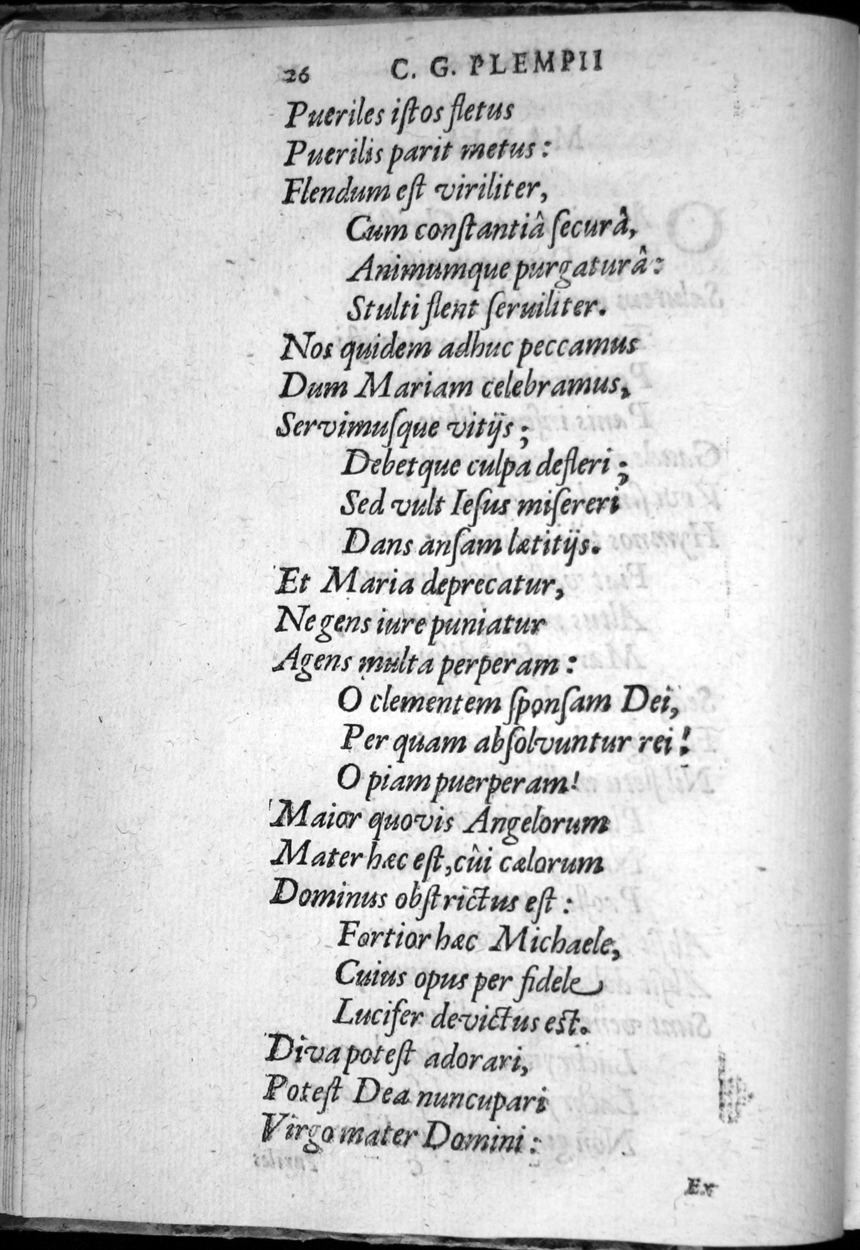 26 C. G. PLEMPII
Pueriles iſtos fletus
Puerilis parit metus :
Flendum eſt viriliter,
Cum conſtantiâ ſecurâ,
Animumque purgaturâ:
Stulti flent ſeruiliter.
Nos quidem adhuc peccamus
Dum Mariam celebramus,
Servimuſque vitijs ;
Debetque culpa defleri ;
Sed vult Ieſus miſereri
Dans anſam lætitijs.
Et Maria deprecatur,
Ne gens iure puniatur
Agens multa perperam :
O clementem ſponſam Dei,
Per quam abſolvuntur rei !
O piam puerperam !
Maior quovis Angelorum
Mater hæc eſt, cûi cælorum
Dominus obſtrictus eſt :
Fortior hæc Michaele,
Cuius opus per fidele
Lucifer devictus eſt.
Diva poteſt adorari,
Poteſt Dea nuncupari
Virgo mater Domini :
Ex